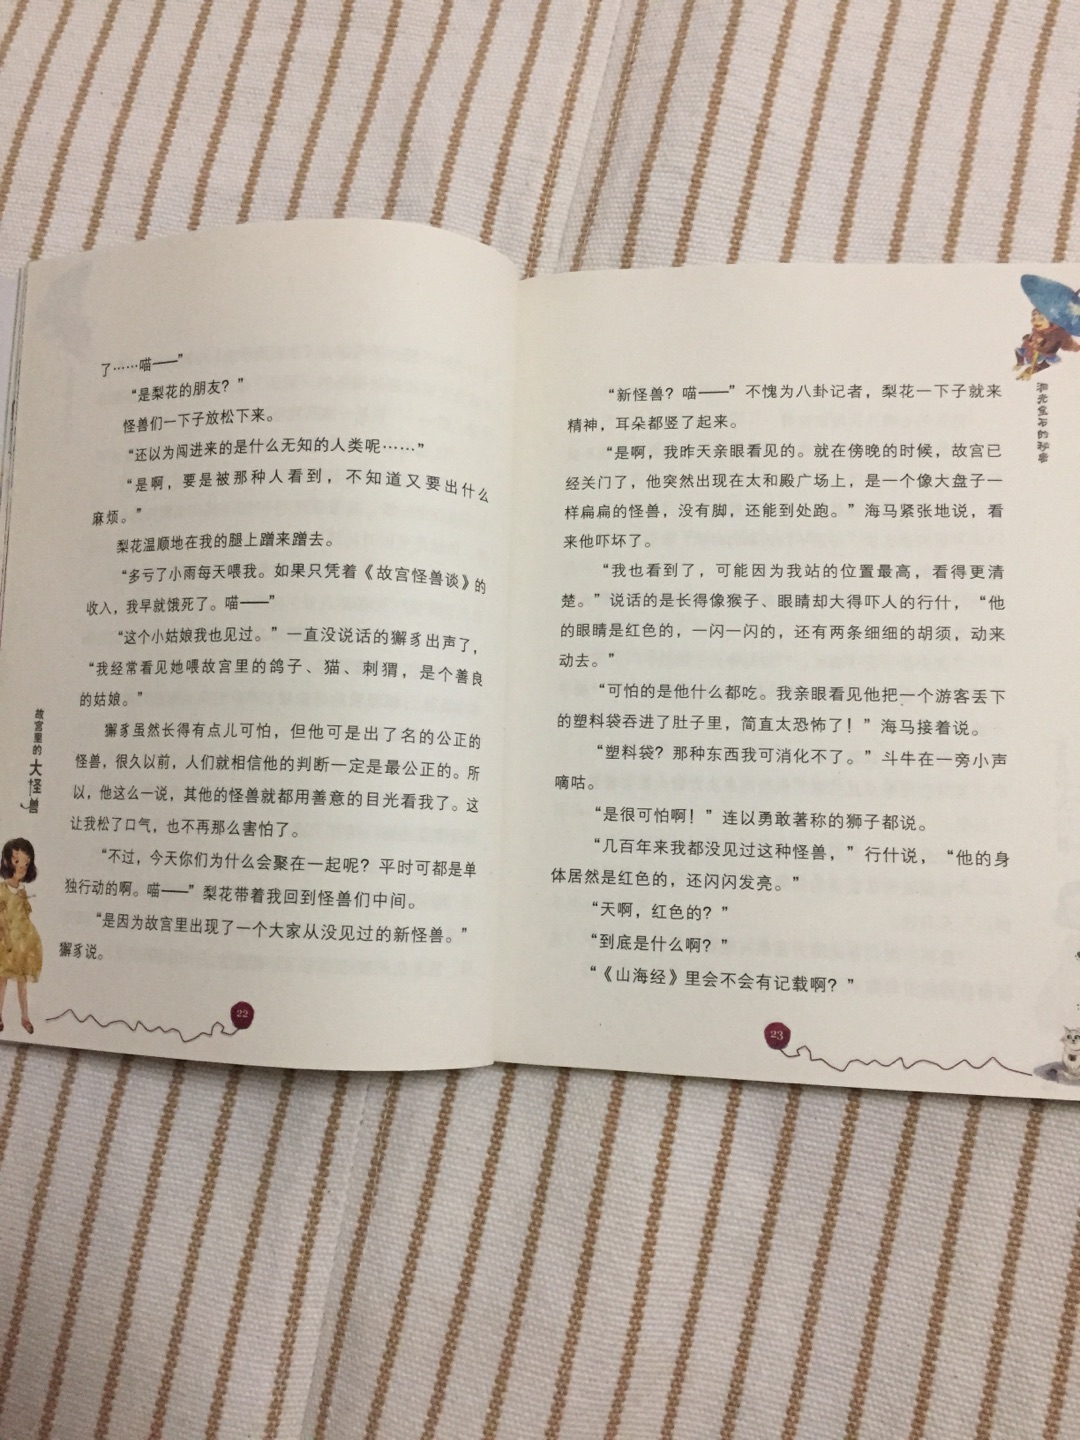 了……喵——”
“是梨花的朋友？”
怪兽们一下子放松下来。
“还以为闯进来的是什么无知的人类呢……”
“是啊，要是被那种人看到，不知道又要出什么
麻烦。”
梨花温顺地在我的腿上蹭来蹭去。
“多亏了小雨每天喂我。如果只凭着《故宫怪兽谈》的
收入，我早就饿死了。喵——”
“这个小姑娘我也见过。”一直没说话的獬豸出声了，
“我经常看见她喂故宫里的鸽子、猫、刺猬，是个善良
的姑娘。”
獬豸虽然长得有点儿可怕，但他可是出了名的公正的
怪兽，很久以前，人们就相信他的判断一定是最公正的。所
以，他这么一说，其他的怪兽就都用善意的目光看我了。这
让我松了口气，也不再那么害怕了。
“不过，今天你们为什么会聚在一起呢？平时可都是单
独行动的啊。喵——”梨花带着我回到怪兽们中间。
“是因为故宫里出现了一个大家从没见过的新怪兽。”
獬豸说。
故宫里的大怪兽
22
“新怪兽？喵——”不愧为八卦记者，梨花一下子就来
精神，耳朵都竖了起来。
“是啊，我昨天亲眼看见的。就在傍晚的时候，故宫已
经关门了，他突然出现在太和殿广场上，是一个像大盘子一
样扁扁的怪兽，没有脚，还能到处跑。”海马紧张地说，看
来他吓坏了。
“我也看到了，可能因为我站的位置最高，看得更清
楚。”说话的是长得像猴子、眼睛却大得吓人的行什，“他
的眼睛是红色的，一闪一闪的，还有两条细细的胡须，动来
动去。”
“可怕的是他什么都吃。我亲眼看见他把一个游客丢下
的塑料袋吞进了肚子里，简直太恐怖了！”海马接着说。
“塑料袋？那种东西我可消化不了。”斗牛在一旁小声
嘀咕。
“是很可怕啊！”连以勇敢著称的狮子都说。
“几百年来我都没见过这种怪兽，”行什说，“他的身
体居然是红色的，还闪闪发亮。”
“天啊，红色的？”
“到底是什么啊？”
“《山海经》里会不会有记载啊？”
23